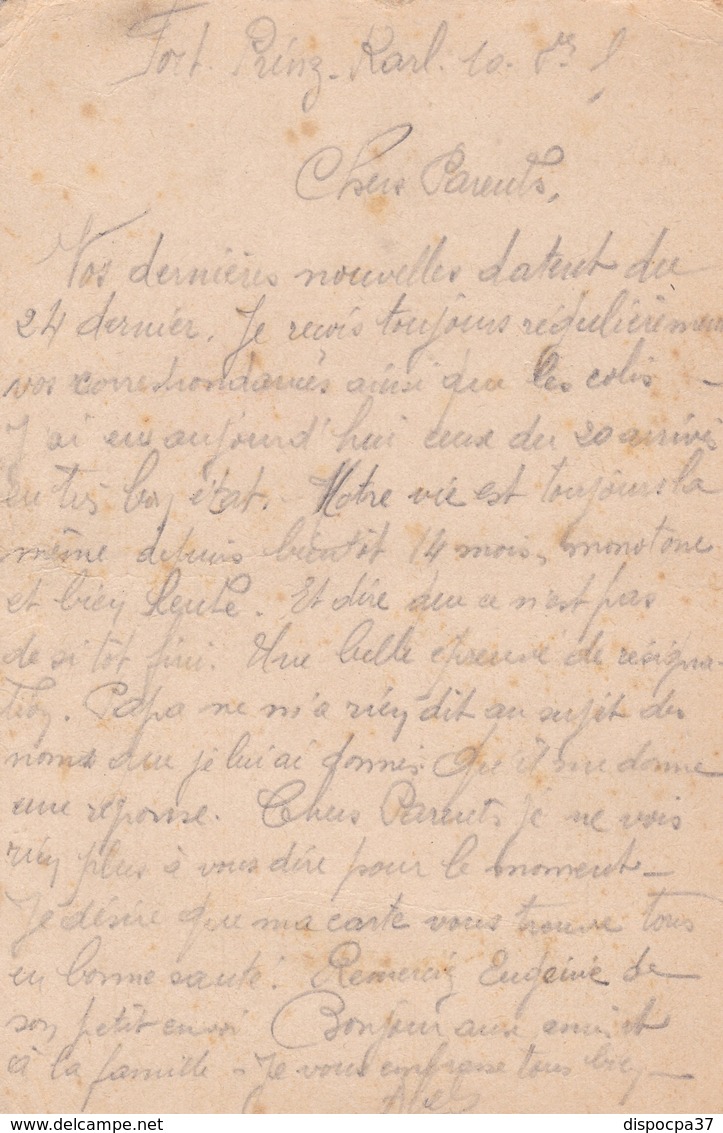 Fort. Prinz-Karl. 10. 8bre
Chers Parents,
Vos dernières nouvelles datent du
24 dernier. Je reçois toujours régulièrement
vos correspondances ainsi que les colis -
J'ai eu aujourd'hui ceux du 20 arrivés
en très bon état. - Notre vie est toujours la
même depuis bientôt 14 mois, monotone
et bien lente. Et dire que ce n'est pas
de si tôt fini. Une belle épreuve de résigna-
tion. Papa ne m'a rien dit au sujet des
noms que je lui ai donnés. Qu'il me donne
une réponse. Chers Parents je ne vois
rien plus à vous dire pour le moment -
Je désire que ma carte vous trouve tous
en bonne santé. Remerciez Eugénie de
son petit envoi Bonjour aux amis et
à la famille - Je vous embrasse tous bien -
delcampe.net
dispocpa37